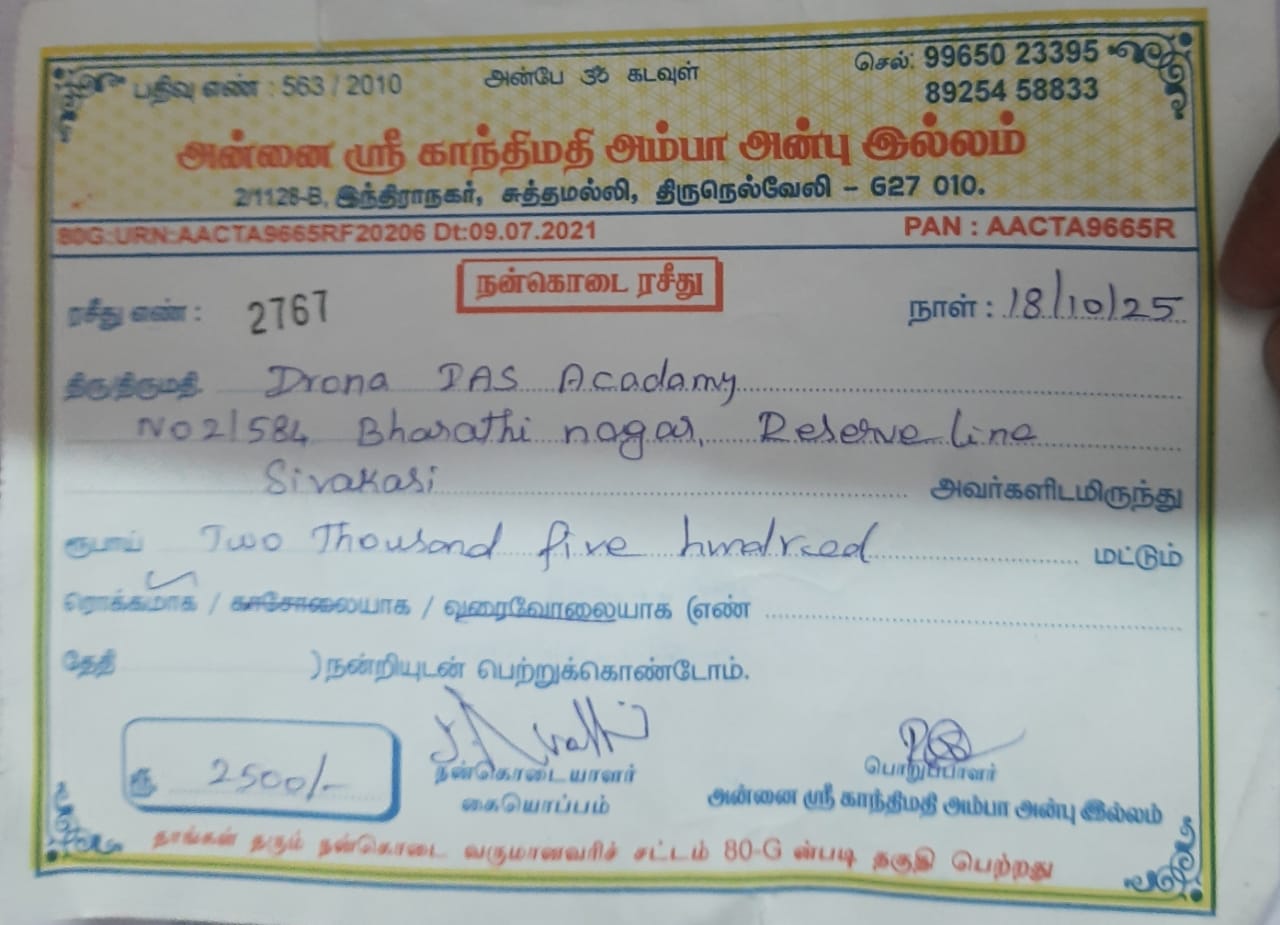 பதிவு எண் : 563 / 2010 அன்பே ௐ கடவுள் செல்: 99650 23395
89254 58833
அன்னை ஸ்ரீ காந்திமதி அம்பா அன்பு இல்லம்
2/1128-B, இந்திராநகர், சுத்தமல்லி, திருநெல்வேலி - 627 010.
80G:URN:AACTA9665RF20206 Dt:09.07.2021 PAN : AACTA9665R
நன்கொடை ரசீது
ரசீது எண் : 2767 நாள் : 18/10/25
திரு/திருமதி Drona IAS Acadamy
NO 2/584 Bharathi nagar, Reserve line
Sivakasi அவர்களிடமிருந்து
ரூபாய் Two Thousand five hundreed மட்டும்
ரொக்கமாக / காசோலையாக / வரைவோலையாக (எண்
தேதி ) நன்றியுடன் பெற்றுக்கொண்டோம்.
ரூ. 2500/-
நன்கொடையாளர் பொறுப்பாளர்
கையொப்பம் அன்னை ஸ்ரீ காந்திமதி அம்பா அன்பு இல்லம்
தாங்கள் தரும் நன்கொடை வருமானவரிச் சட்டம் 80-G ன்படி தகுதி பெற்றது